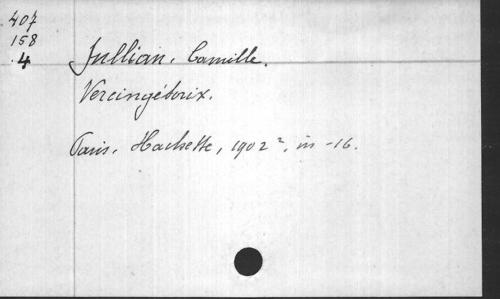 407
158
.4
Jullian. Camille.
Vercingétorix.
Paris. Hachette, 1902². in -16.